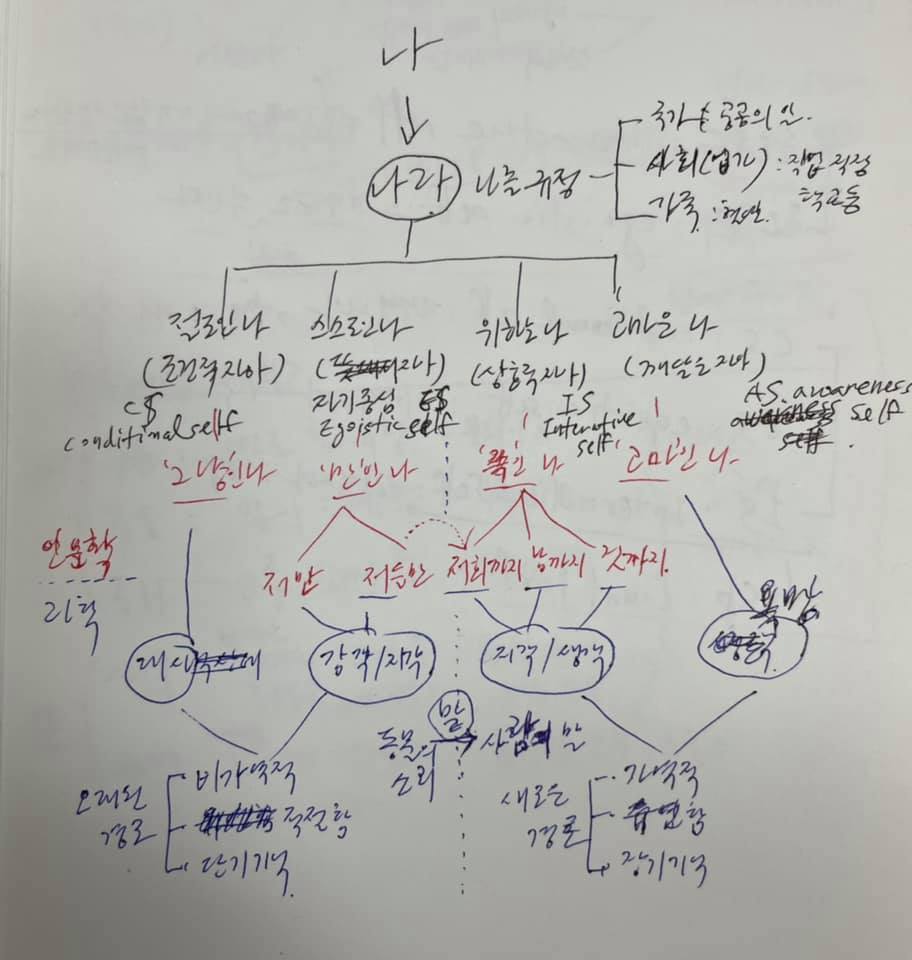 나
나라 나를 규정
국가 는 공공의 일.
사회(업가) : 직업 직장
학교등
가족 :
절로인 나 스스로인 나 위하는 나 고마운 나
(조건적자아) (자아) (상호적자아) (깨달은 자아)
CS 자기중심 ES IS AS. awareness
conditional self Egoistic self Interactive self self
'그냥'인 나 '만'인 나 '쪽'인 나 '고마'인 나
인문학 저만 저들만 저희까지 남까지 것까지.
리학 욕망
대사 감각/지각 지각/생각
말
동물의 소리 사람의 말
오래된 경로 비가역적
적절함
단기기억
새로운 경로 가역적
유연함
장기기억